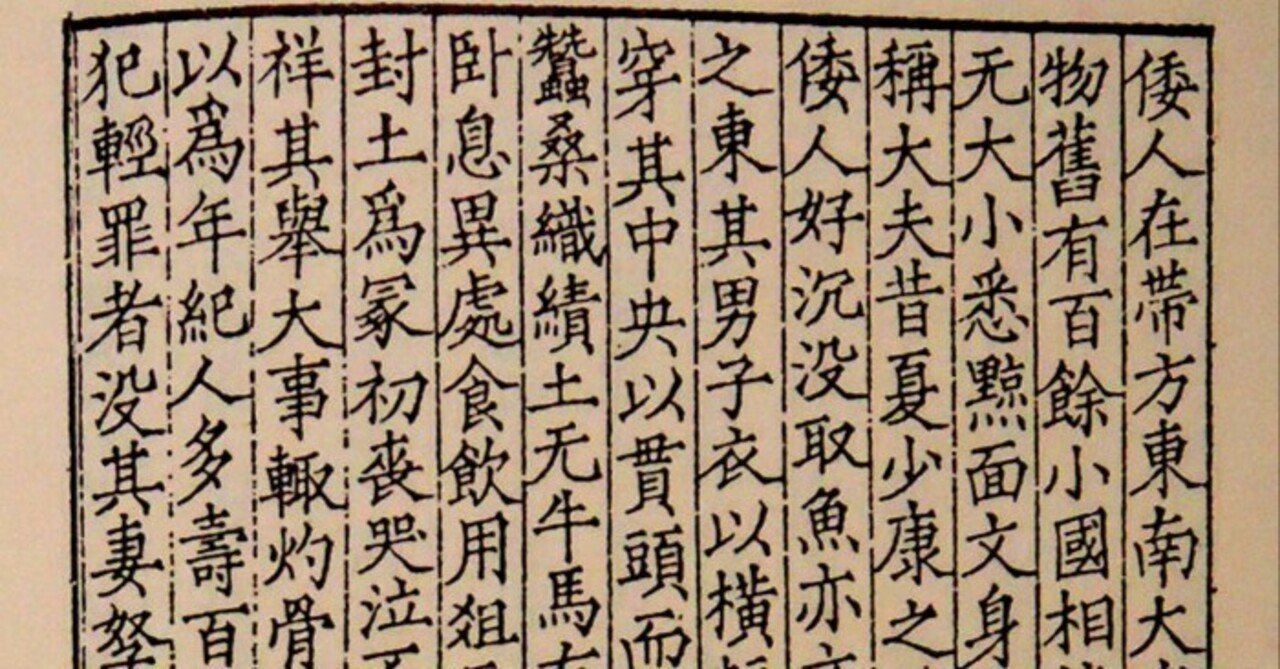 倭人在帶方東南大
物舊有百餘小國相
无大小悉黥面文身
稱大夫昔夏少康之
倭人好沉没取魚亦
之東其男子衣以橫
穿其中央以貫頭而
蠶桑織績土无牛馬
卧息異處食飲用俎
封土爲冢初喪哭泣
祥其舉大事輙灼骨
以爲年紀人多壽百
犯輕罪者没其妻孥